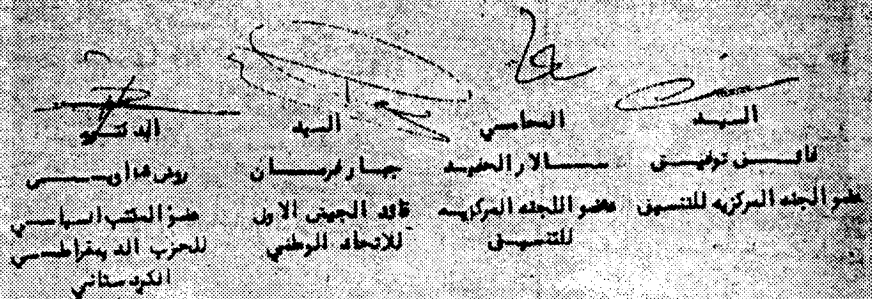 السيد
فائق توفيق
عضو الجنه المركزيه للتنسيق
المحامي
سالار الحفيد
عضو اللجنه المركزيه
للتنسيق
السيد
جبار فرمان
قائد الجيش الاول
للاتحاد الوطني
الدكتور
عضو المكتب السياسي
للحزب الديمقراطي
الكردستاني